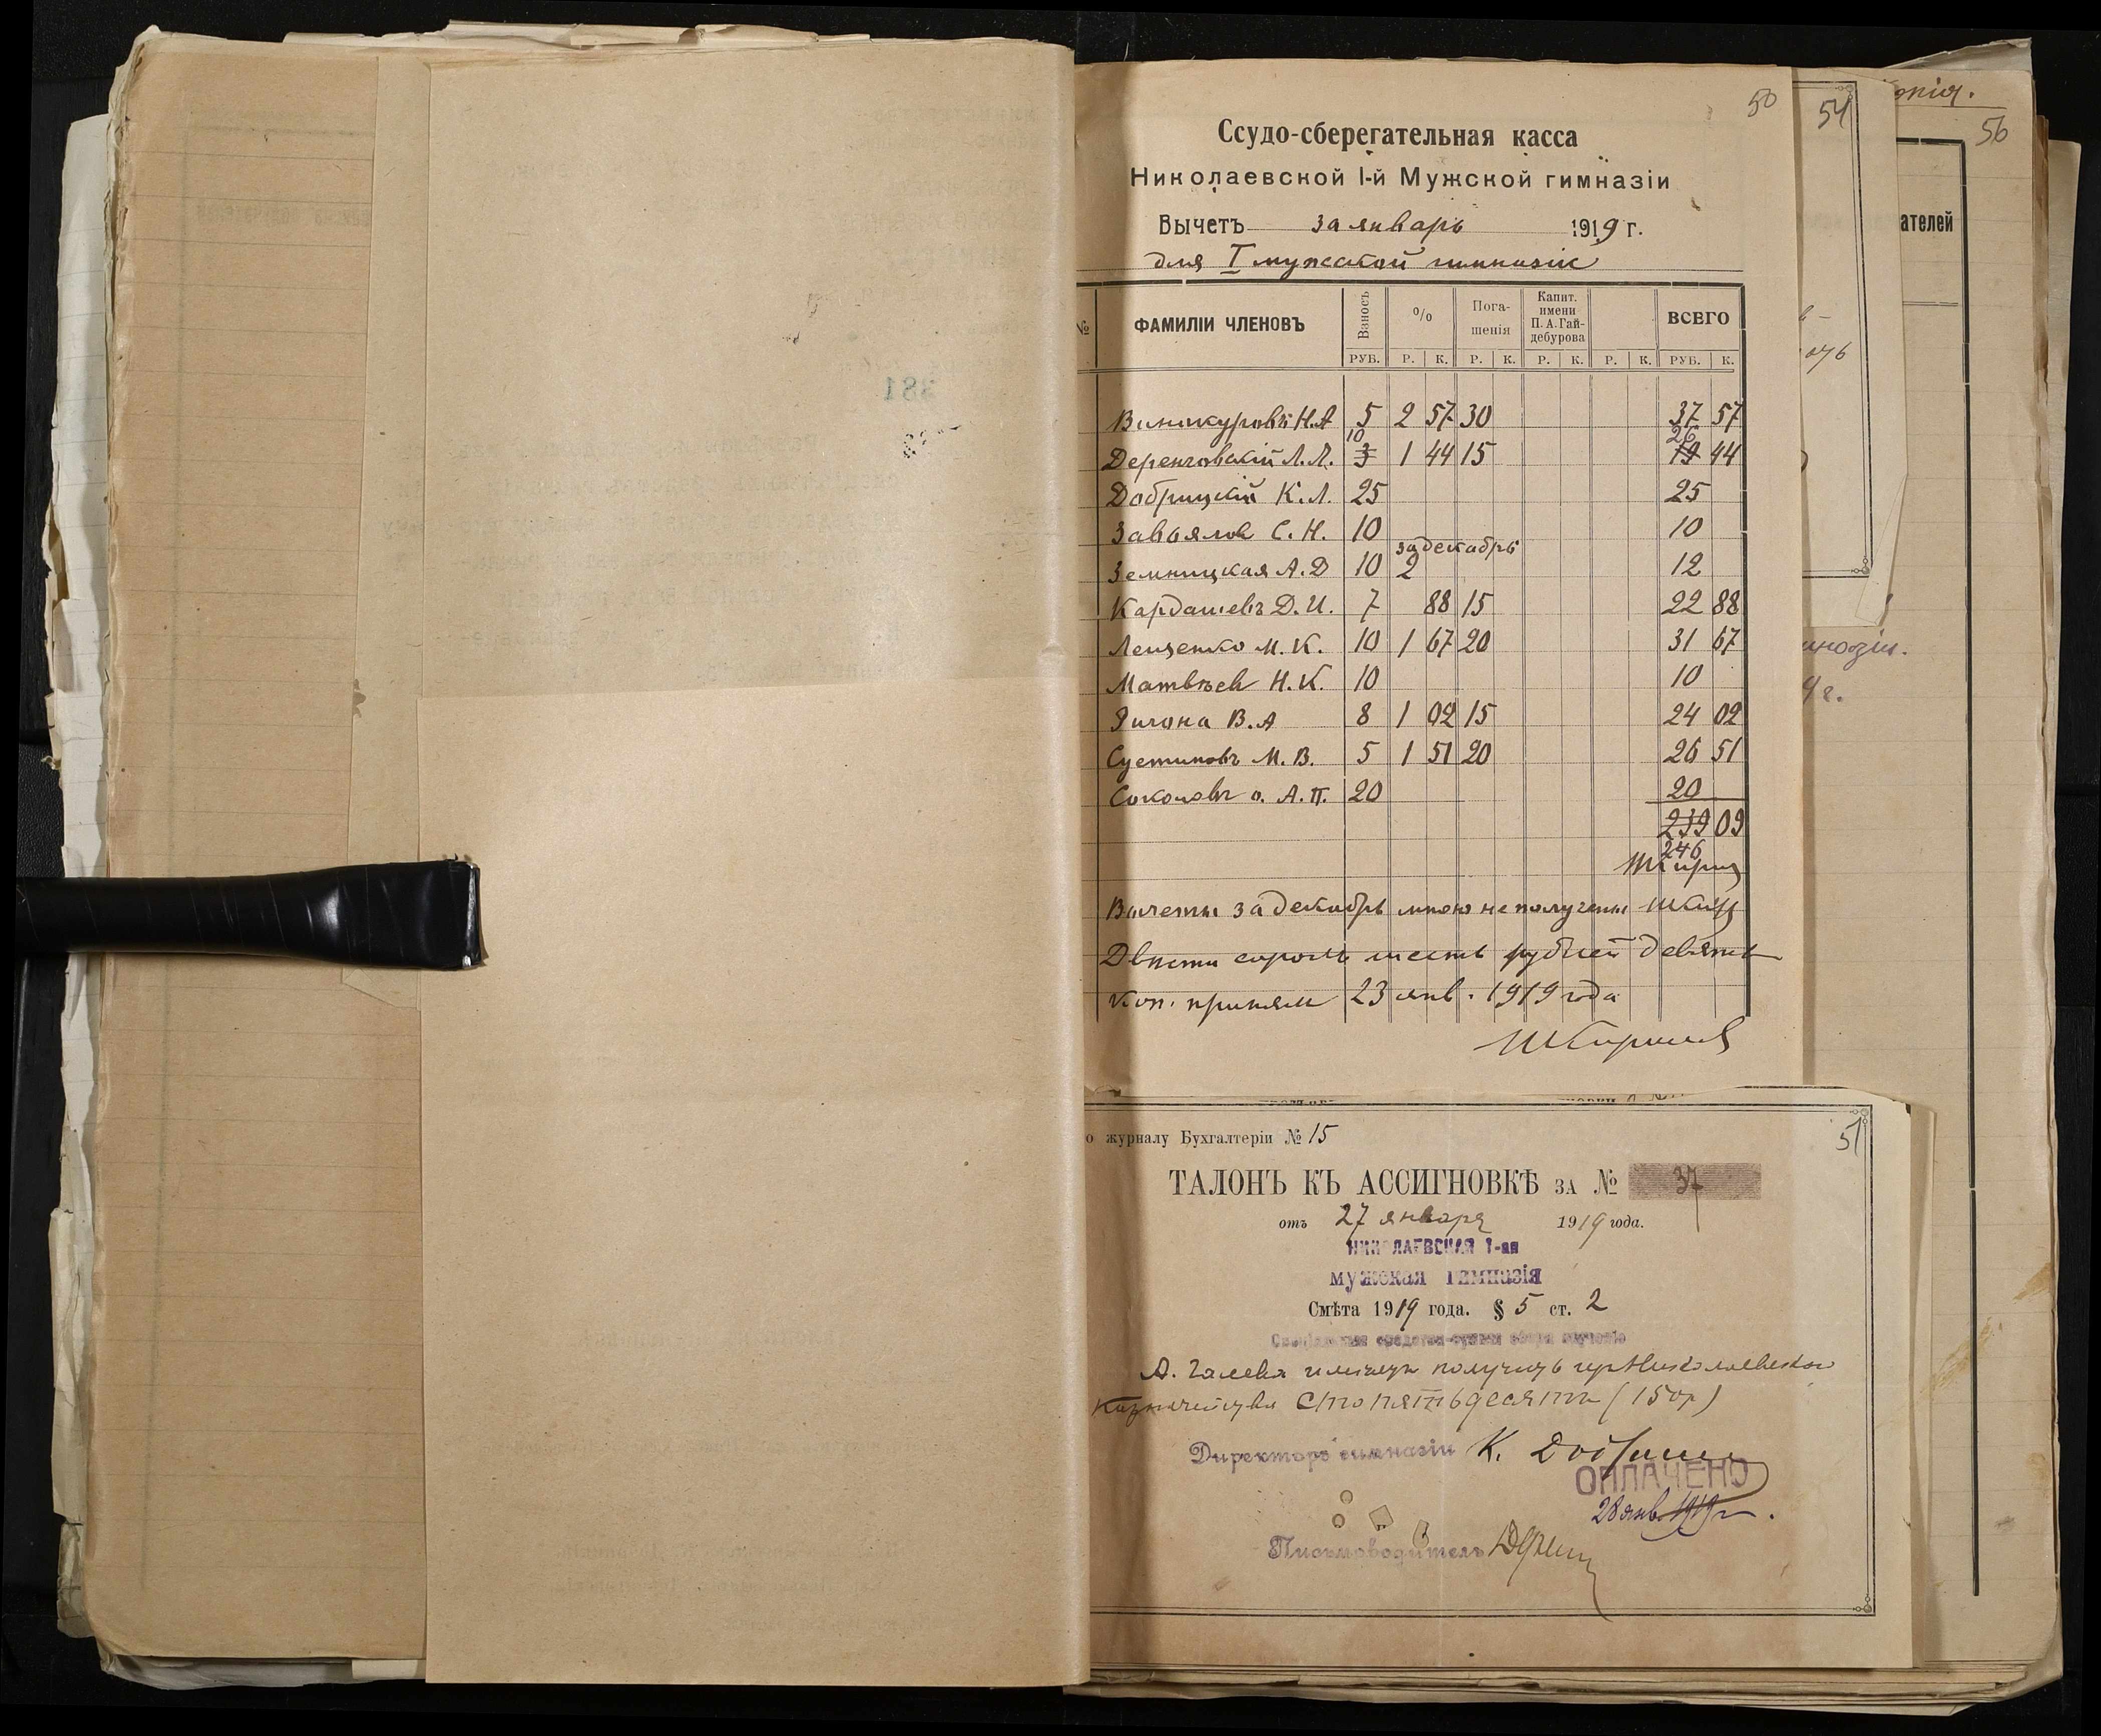 50
Ссудо-сберегательная касса
Николаевской I-й Мужской гимназіи
Вычетъ за январь 1919 г.
для I мужской гимназіи
№ ФАМИЛІИ ЧЛЕНОВЪ Взносъ % Пога-шенія Капит. имени П. А. Гай-дебурова ВСЕГО
РУБ. Р. К. Р. К. Р. К. Р. К. РУБ. К.
Винокуровъ Н.А 5 2 57 30 37 57
10 26
Деренговскій Л.Л. 3 1 44 15 19 44
Добрицкій К.Л. 25 25
Завьялов С. Н. 10 10
за декабрь
Земницкая А.Д 10 2 12
Кардашевъ Д.И. 7 88 15 22 88
Лещенко М.К. 10 1 67 20 31 67
Матвѣев Н.К. 10 10
В.А 8 1 02 15 24 02
Суетиновъ М.В. 5 1 51 20 26 51
Соколовъ о. А.П. 20 20
239 09
246
Вычеты за декабрь мною не получены
Двѣсти сорокъ шесть рублей девять
коп. принялъ 23 янв. 1919 года
54
опія.
56
ателей
51
о журналу Бухгалтеріи № 15
ТАЛОНЪ КЪ АССИГНОВКѢ ЗА № 37
отъ 27 января 1919 года.
НИКОЛАЕВСКАЯ 1-ая
мужская гимназія
Смѣта 1919 года. § 5 ст. 2
А. имѣетъ получить изъ Николаевскаго
Казначейства Сто пятьдесятъ (150р)
Директоръ гимназіи К.
ОПЛАЧЕНО
28 янв. 1919 г.
Письмоводитель
381